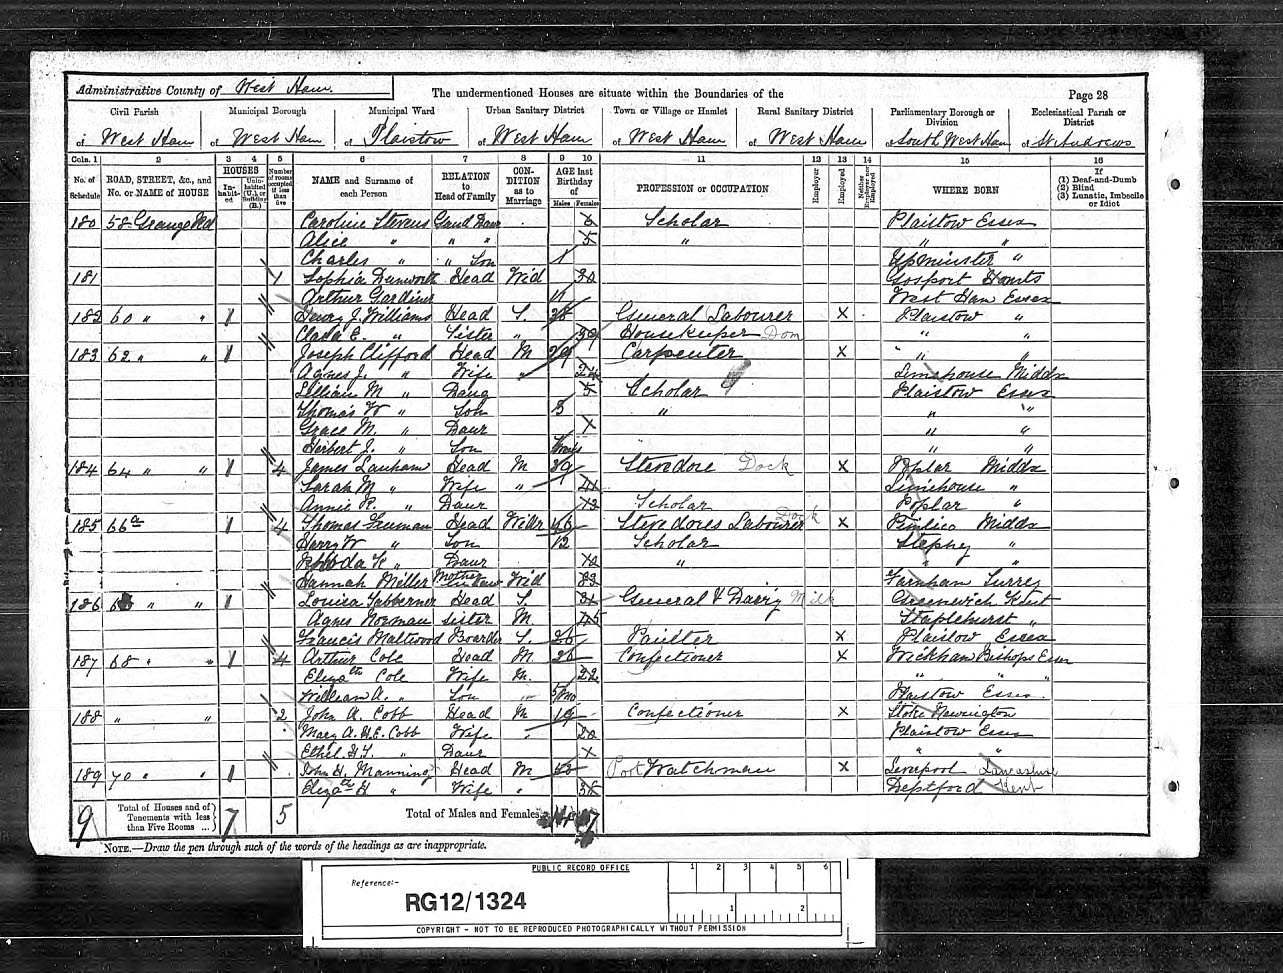 Administrative County of West Ham.
The undermentioned Houses are situate within the Boundaries of the
Page 28
Civil Parish
of West Ham
Municipal Borough
of West Ham
Municipal Ward
of Plaistow
Urban Sanitary District
of West Ham
Town or Village or Hamlet
of West Ham
Rural Sanitary District
of West Ham
Parliamentary Borough or Division
of South West Ham
Ecclesiastical Parish or District
of St Andrews
Cols. 1 2 3 4 5 6 7 8 9 10 11 12 13 14 15 16
No. of Schedule
ROAD, STREET, &c., and No. or NAME of HOUSE
HOUSES
In-habit-ed
Unin-habited (U.), or Building (B.)
Number of rooms occupied if less than five
NAME and Surname of each Person
RELATION to Head of Family
CON-DITION as to Marriage
AGE last Birthday of
Males Females
PROFESSION or OCCUPATION
Employer
Employed
Neither Employer nor Employed
WHERE BORN
If
(1) Deaf-and-Dumb
(2) Blind
(3) Lunatic, Imbecile or Idiot
180 58 Grange Rd Caroline Stevens Grand Daur Scholar Plaistow Essex
Alice " " " 5 " " "
Charles " " Son 1 Upminster "
181 1 Sophia Head Wid Gosport Hants
Arthur Gardiner 11 West Ham Essex
182 60 " " 1 Henry J. Williams Head S. General Labourer X Plaistow "
E. " Sister " Housekeeper Dom " "
183 62 " " 1 Joseph Clifford Head M 29 Carpenter X " "
Agnes J. " Wife " 24 Limehouse Middx
Lillian M " Daug 5 Scholar Plaistow Essex
Thomas W " Son 3 " " "
Grace M. " Daur " "
Herbert J. " Son " "
184 64 " " 1 4 James Lanham Head M 39 Stevedore Dock X Poplar Middx
Sarah M " Wife " 41 Limehouse "
Annie R. " Daur Scholar Poplar "
185 66a 1 4 Thomas Freeman Head Widr 46 Stevedores Labourer Dock X Pimlico Middx
Harry W " Son 12 Scholar Stepney "
Rhoda K " Daur 10 " " "
Hannah Miller Mother in Law Wid 83 Farnham Surrey
186 " " 1 Louisa Head S. General & Dairy Milk Greenwich Kent
Agnes Norman Sister M. Staplehurst "
Francis Maltwood Boarder S. 26 X Plaistow Essex
187 68 " " 1 4 Arthur Cole Head M 26 Confectioner X Wickham Bishops Essex
Elizath Cole Wife M. 22 " " "
William A. " Son 5 mo Plaistow Essex
188 " " 2 John A. Cobb Head M 19 Confectioner X Stoke Newington
Mary A.H.E. Cobb Wife " 20 Plaistow Essex
Ethel " Daur " "
189 70 " " 1 John H. Manning Head M Watchman X Liverpool Lancashire
Elizath H " Wife " Deptford Kent
9
Total of Houses and of Tenements with less than Five Rooms ...
7
5
Total of Males and Females...
14 17
NOTE.—Draw the pen through such of the words of the headings as are inappropriate.
PUBLIC RECORD OFFICE
Reference:-
RG12/1324
1 2 3 4 5 6
1 2
COPYRIGHT - NOT TO BE REPRODUCED PHOTOGRAPHICALLY WITHOUT PERMISSION